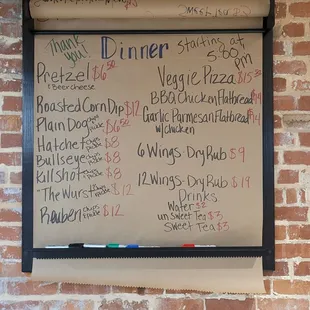 Thank you!
Dinner
Starting at 5:00 pm
Pretzel $6.50
Beer cheese
Roasted Corn Dip $12
Plain Dog $6.50
Hatchet $8
Bullseye $8
Killshot $8
"The Wurst" $12
Reuben $12
Veggie Pizza $15.50
BBQ Chicken Flatbread $14
Garlic Parmesan Flatbread $14
w/chicken
6 Wings - Dry Rub $9
12 Wings - Dry Rub $19
Drinks
Water $2
un Sweet Tea $3
Sweet Tea $3